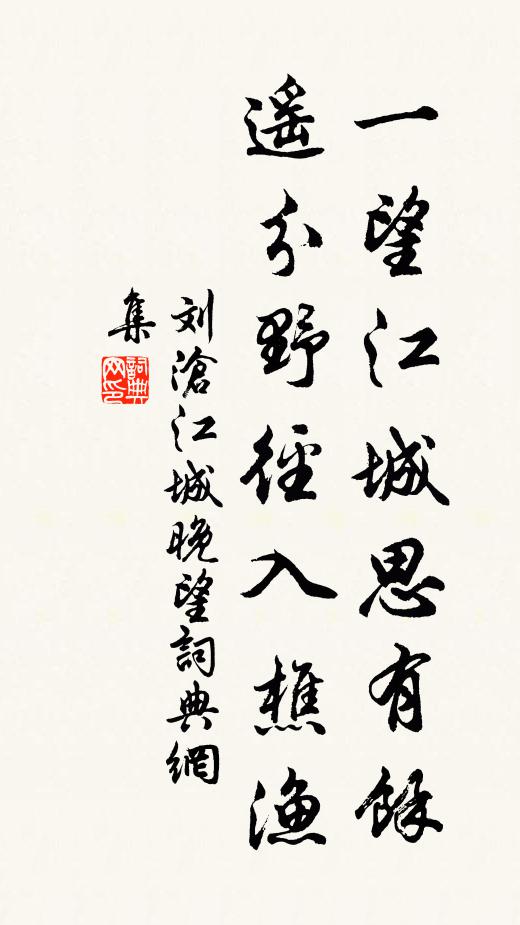 一望江城思有餘
遥分野徑入樵漁
刘滄江城晚望詞典網
集
詞典
网印